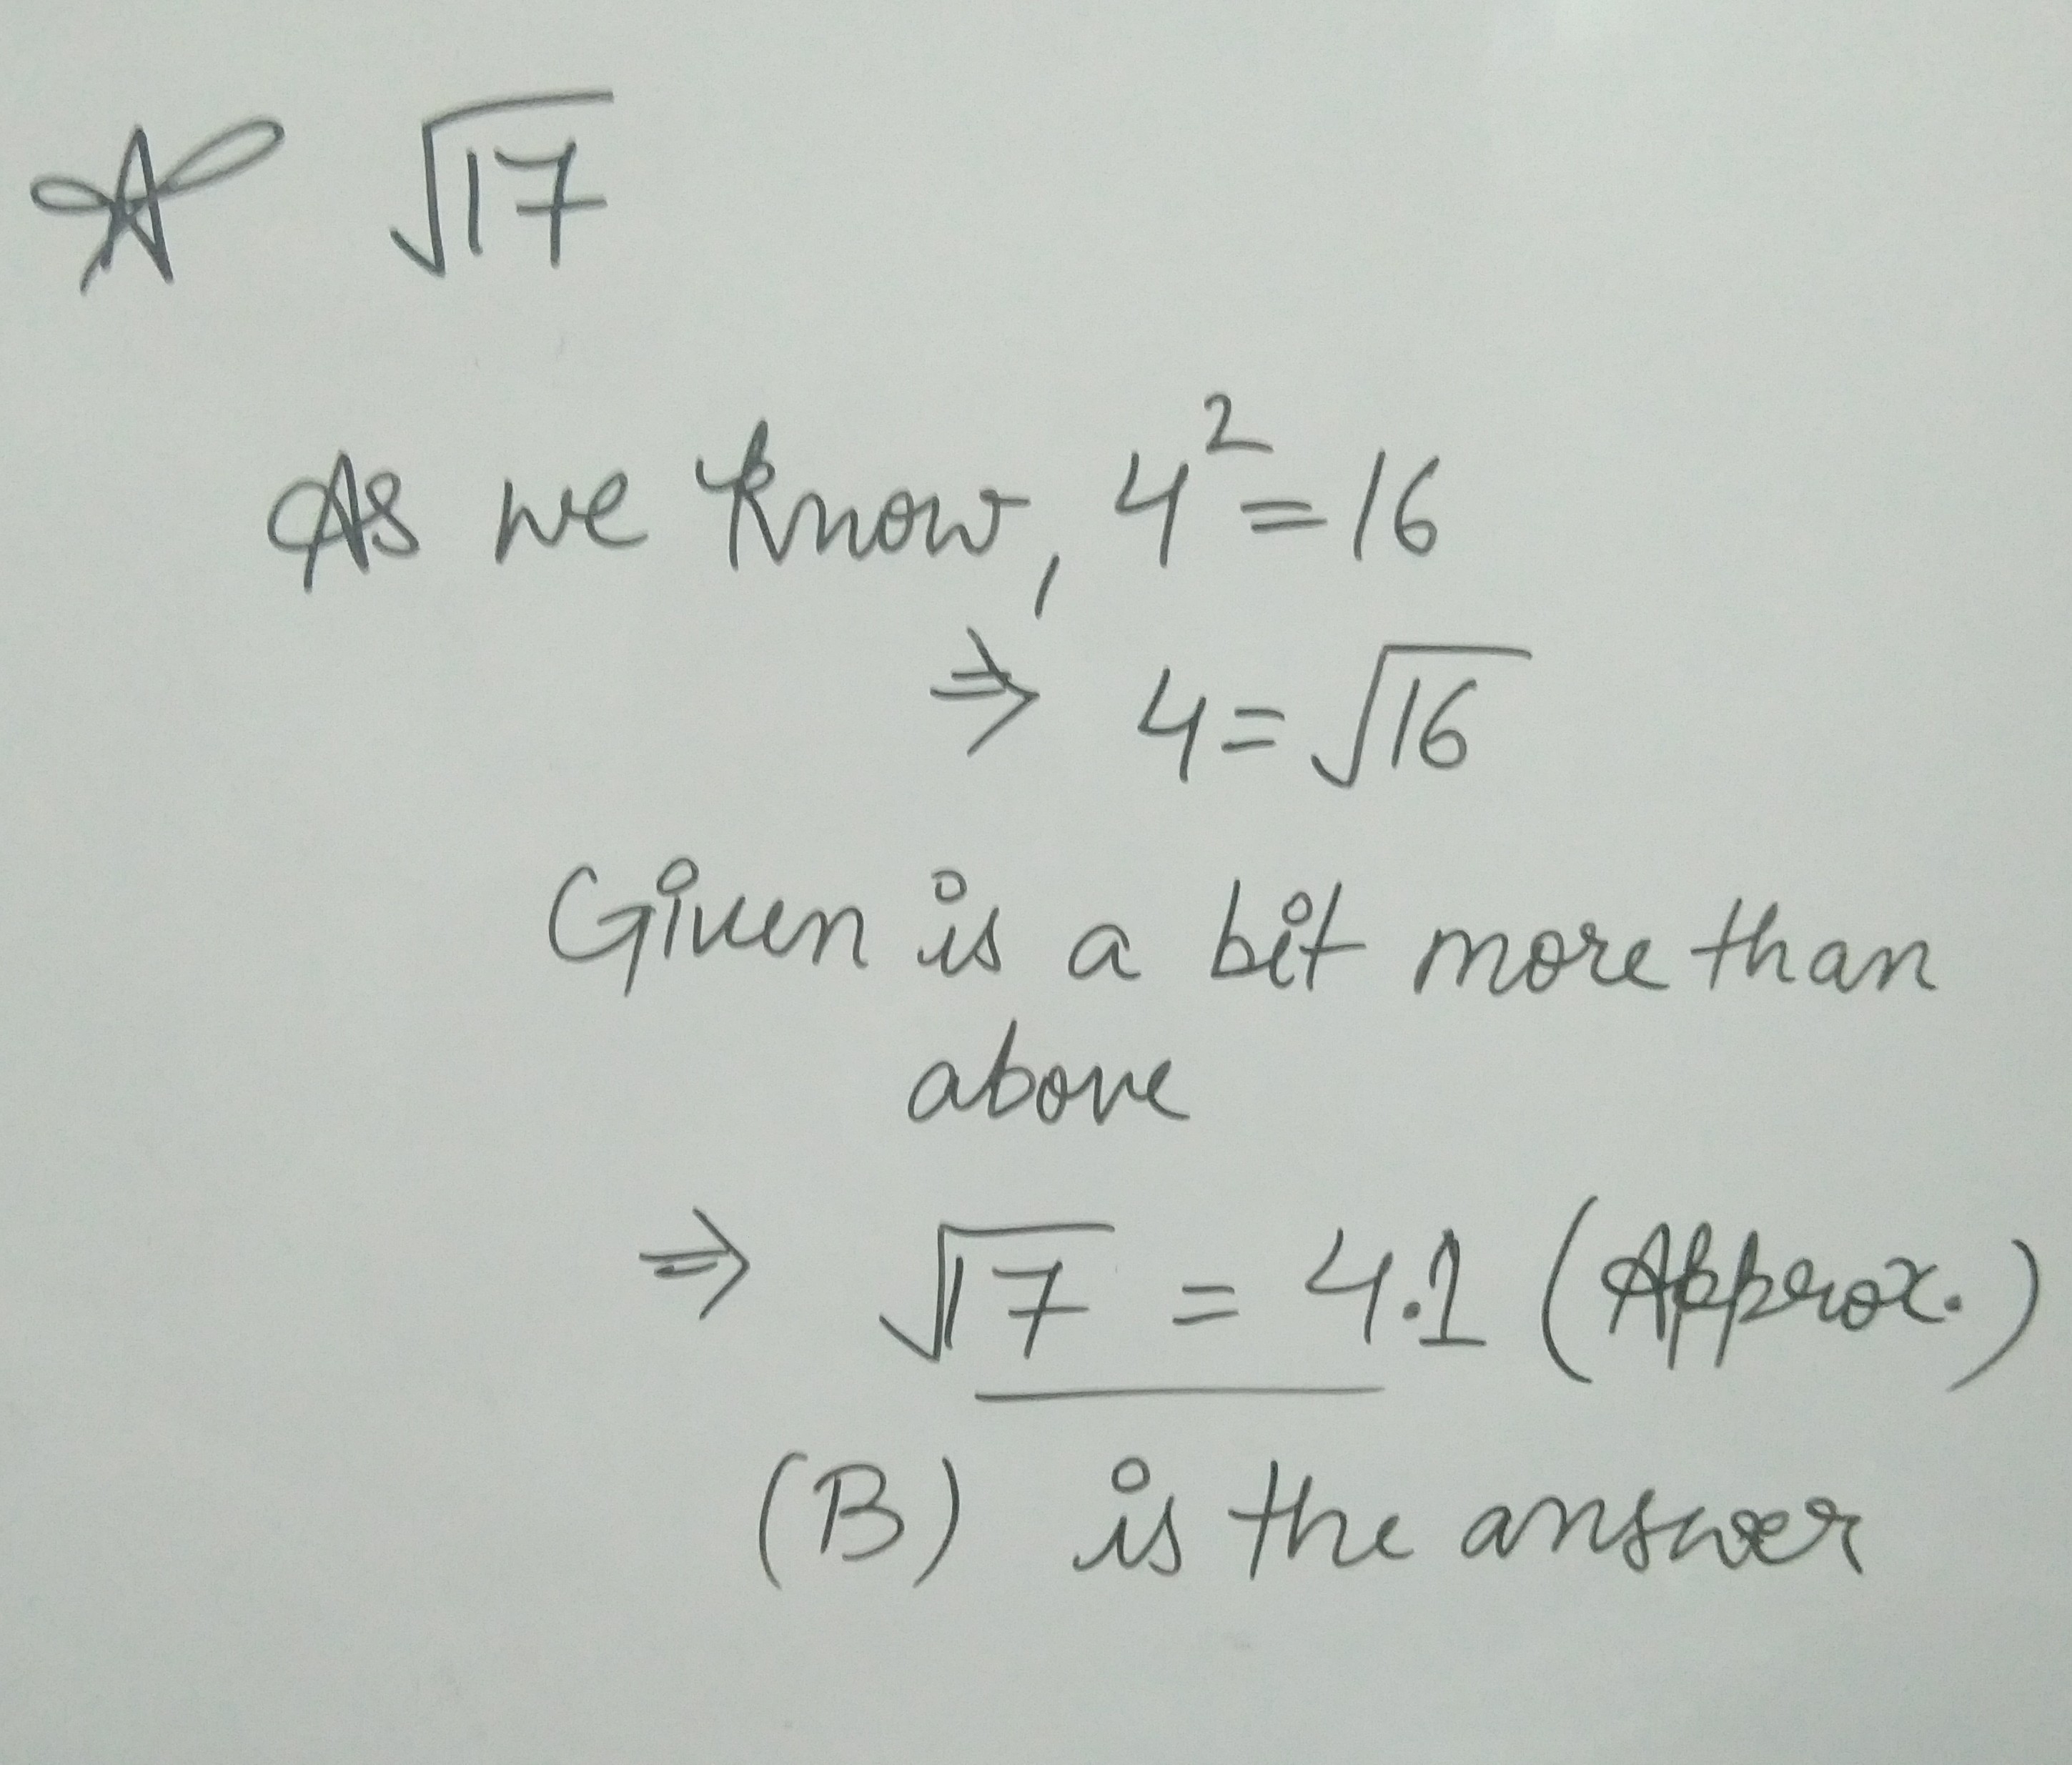 √17
As we know, 4² = 16
⇒ 4 = √16
Given is a bit more than
above
⇒ √17 = 4.1 (Approx.)
(B) is the answer